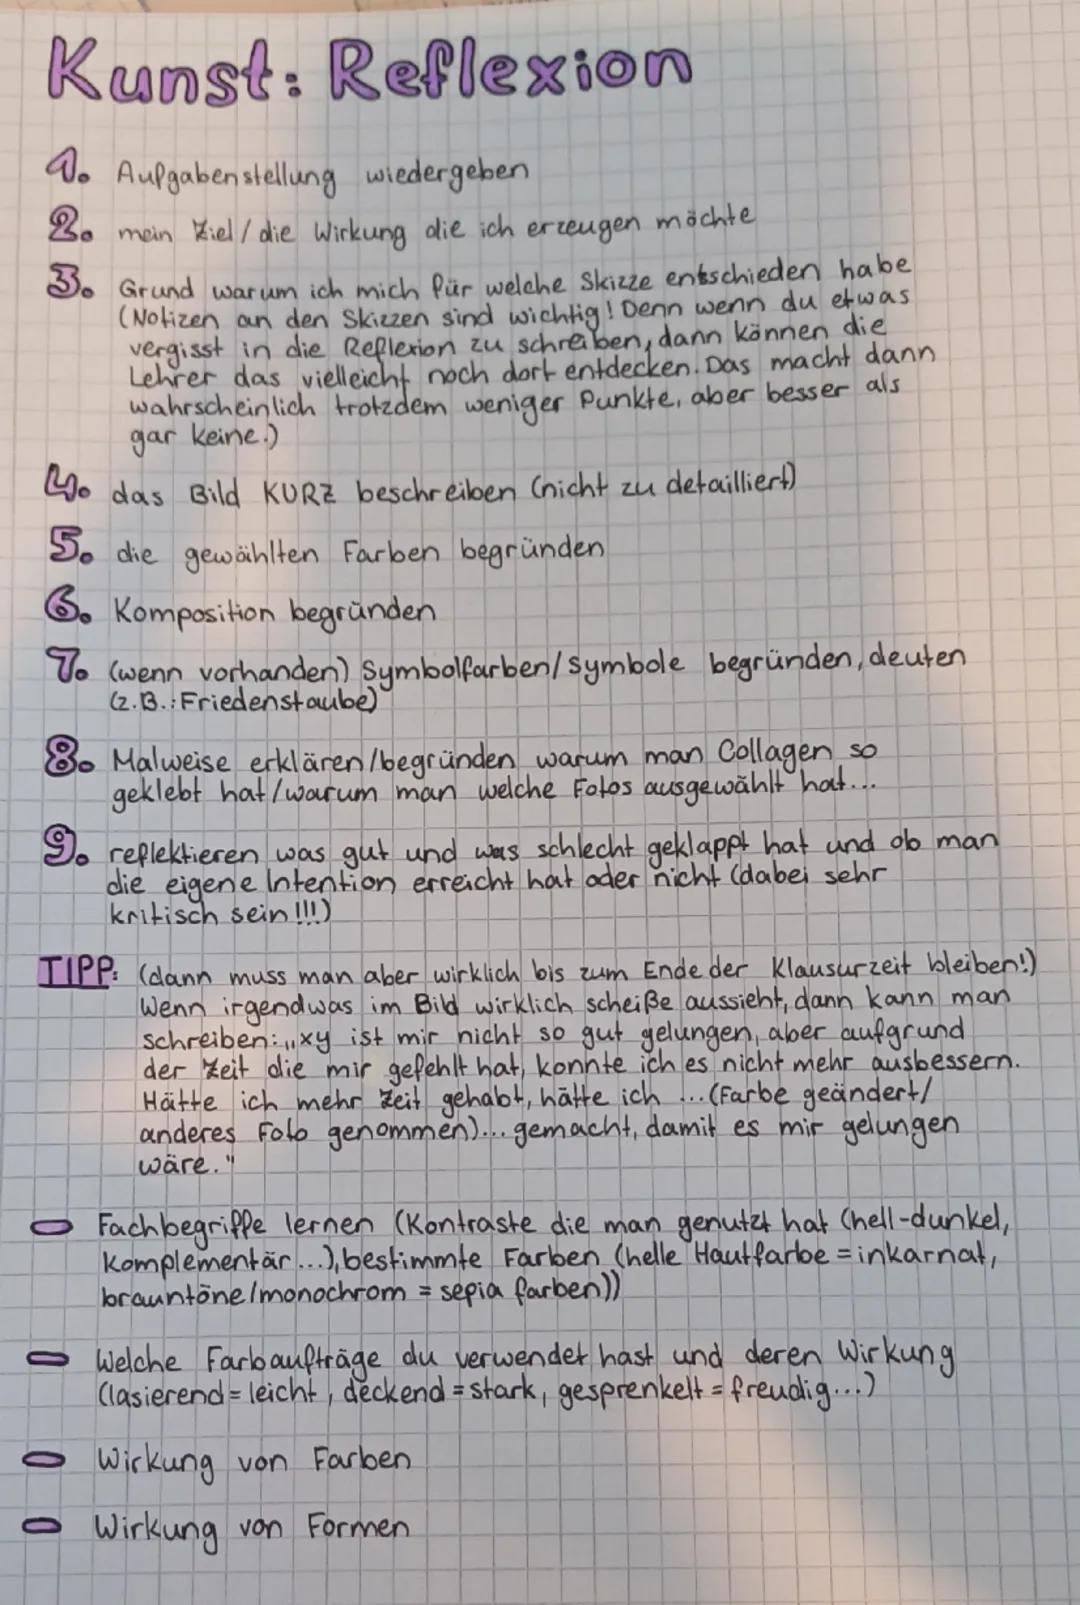 Kunst: Reflexion
1. Aufgabenstellung wiedergeben
2. mein Ziel/die Wirkung die ich erzeugen möchte
3. Grund warum ich mich für welche Skizze entschieden habe
(Notizen an den Skizzen sind wichtig! Denn wenn du etwas
vergisst in die Reflexion zu schreiben, dann können die
Lehrer das vielleicht noch dort entdecken. Das macht dann
wahrscheinlich trotzdem weniger Punkte, aber besser als
gar keine.)
4. das Bild KURZ beschreiben (nicht zu detailliert)
5. die gewählten Farben begründen
6. Komposition begründen
7. (wenn vorhanden) Symbolfarben/Symbole begründen, deuten
(z.B.: Friedenstaube)
8. Malweise erklären/begründen warum man Collagen so
geklebt hat/warum man welche Fotos ausgewählt hat...
9. reflektieren was gut und was schlecht geklappt hat und ob man
die eigene Intention erreicht hat oder nicht (dabei sehr
kritisch sein!!!)
TIPP: (dann muss man aber wirklich bis zum Ende der Klausurzeit bleiben!)
Wenn irgendwas im Bild wirklich scheiße aussieht, dann kann man
schreiben: „xy ist mir nicht so gut gelungen, aber aufgrund
der Zeit die mir gefehlt hat, konnte ich es nicht mehr ausbessern.
Hätte ich mehr Zeit gehabt, hätte ich ...(Farbe geändert/
anderes Foto genommen)... gemacht, damit es mir gelungen
wäre."
- Fachbegriffe lernen (Kontraste die man genutzt hat (hell-dunkel,
komplementär...), bestimmte Farben (helle Hautfarbe = inkarnat,
brauntöne/monochrom = sepia farben))
- Welche Farbaufträge du verwendet hast und deren Wirkung
(lasierend = leicht, deckend = stark, gesprenkelt = freudig...)
- Wirkung von Farben
- Wirkung von Formen